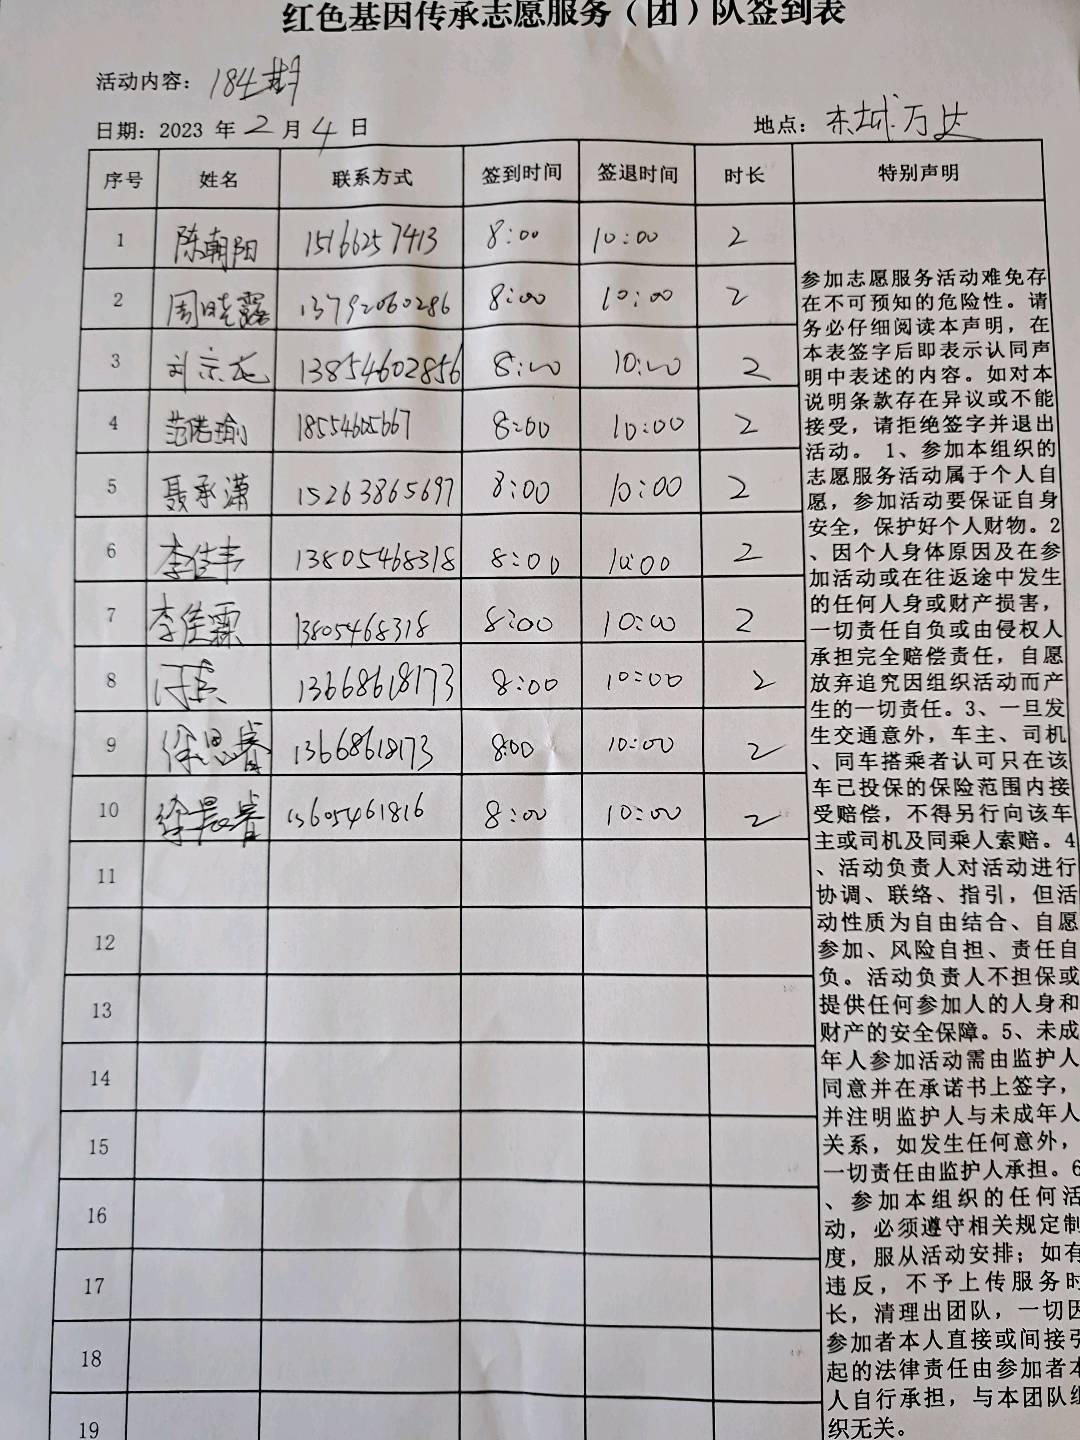 红色基因传承志愿服务（团）队签到表
活动内容：184期
日期：2023 年 2 月 4 日 地点：东城万达
序号 姓名 联系方式 签到时间 签退时间 时长 特别声明
1 陈朝阳 15166257413 8:00 10:00 2
2 周晓露 13792060286 8:00 10:00 2
3 刘京龙 13854602856 8:00 10:00 2
4 范偌瑜 18554605667 8:00 10:00 2
5 聂承潇 15263865697 8:00 10:00 2
6 李佳韦 13805468318 8:00 10:00 2
7 李佳霖 13805468318 8:00 10:00 2
8 13668618173 8:00 10:00 2
9 徐思睿 13668618173 8:00 10:00 2
10 徐晨睿 13605461816 8:00 10:00 2
11
12
13
14
15
16
17
18
19
参加志愿服务活动难免存
在不可预知的危险性。请
务必仔细阅读本声明，在
本表签字后即表示认同声
明中表述的内容。如对本
说明条款存在异议或不能
接受，请拒绝签字并退出
活动。 1、参加本组织的
志愿服务活动属于个人自
愿，参加活动要保证自身
安全，保护好个人财物。2
、因个人身体原因及在参
加活动或在往返途中发生
的任何人身或财产损害，
一切责任自负或由侵权人
承担完全赔偿责任，自愿
放弃追究因组织活动而产
生的一切责任。3、一旦发
生交通意外，车主、司机
、同车搭乘者认可只在该
车已投保的保险范围内接
受赔偿，不得另行向该车
主或司机及同乘人索赔。4
、活动负责人对活动进行
协调、联络、指引，但活
动性质为自由结合、自愿
参加、风险自担、责任自
负。活动负责人不担保或
提供任何参加人的人身和
财产的安全保障。5、未成
年人参加活动需由监护人
同意并在承诺书上签字，
并注明监护人与未成年人
关系，如发生任何意外，
一切责任由监护人承担。6
、参加本组织的任何活
动，必须遵守相关规定制
度，服从活动安排；如有
违反，不予上传服务时
长，清理出团队，一切因
参加者本人直接或间接引
起的法律责任由参加者本
人自行承担，与本团队组
织无关。